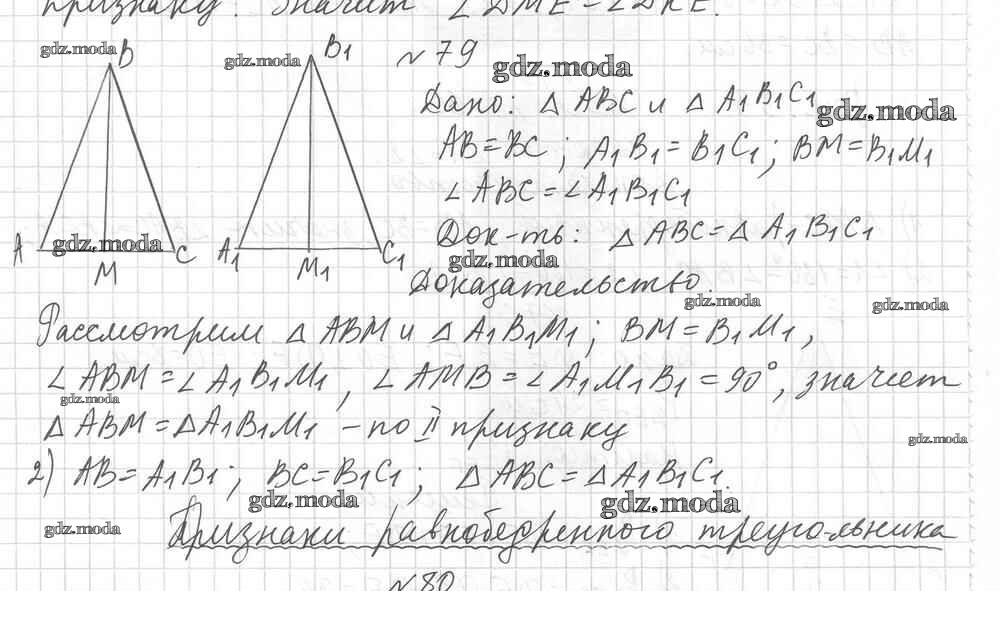 признаку. Значит ∠DME = ∠DKE.
gdz.moda
B
gdz.moda
B1
N 79
gdz.moda
Дано: △ ABC и △ A1B1C1
gdz.moda
AB = BC; A1B1 = B1C1; BM = B1M1
∠ABC = ∠A1B1C1
Док-ть: △ ABC = △ A1B1C1
A
gdz.moda
M
C
A1
M1
C1
gdz.moda
Доказательство.
gdz.moda
gdz.moda
Рассмотрим △ ABM и △ A1B1M1; BM = B1M1,
∠ABM = ∠A1B1M1, ∠AMB = ∠A1M1B1 = 90°, значит
gdz.moda
△ABM = △A1B1M1 - по II признаку
gdz.moda
2) AB = A1B1; BC = B1C1; △ABC = △A1B1C1.
gdz.moda
gdz.moda
gdz.moda
Признаки равнобедренного треуго-льника
N 80